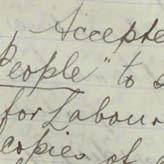 Accepte
People" to
for Labour
copies of